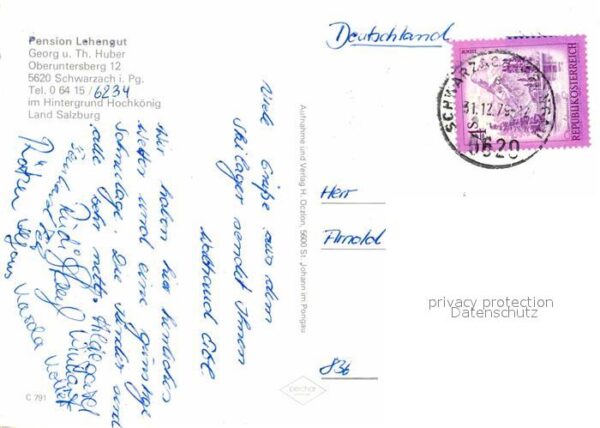 Pension Lehengut
Georg u. Th. Huber
Oberuntersberg 12
5620 Schwarzach i. Pg.
Tel. 0 64 15/6234
im Hintergrund Hochkönig
Land Salzburg
Deutschland
REPUBLIK ÖSTERREICH
SCHWARZACH
31.12.79
5620
Viele Grüße aus dem
Skilager sendet Ihnen
Waltraud
Wir haben hier herrliches
Wetter und eine günstige
Schneelage. Die Kinder sind
alle sehr nett.
Aufnahme und Verlag H. Oczlon, 5600 St. Johann im Pongau
Herr
Arnold
privacy protection
Datenschutz
836
C 791